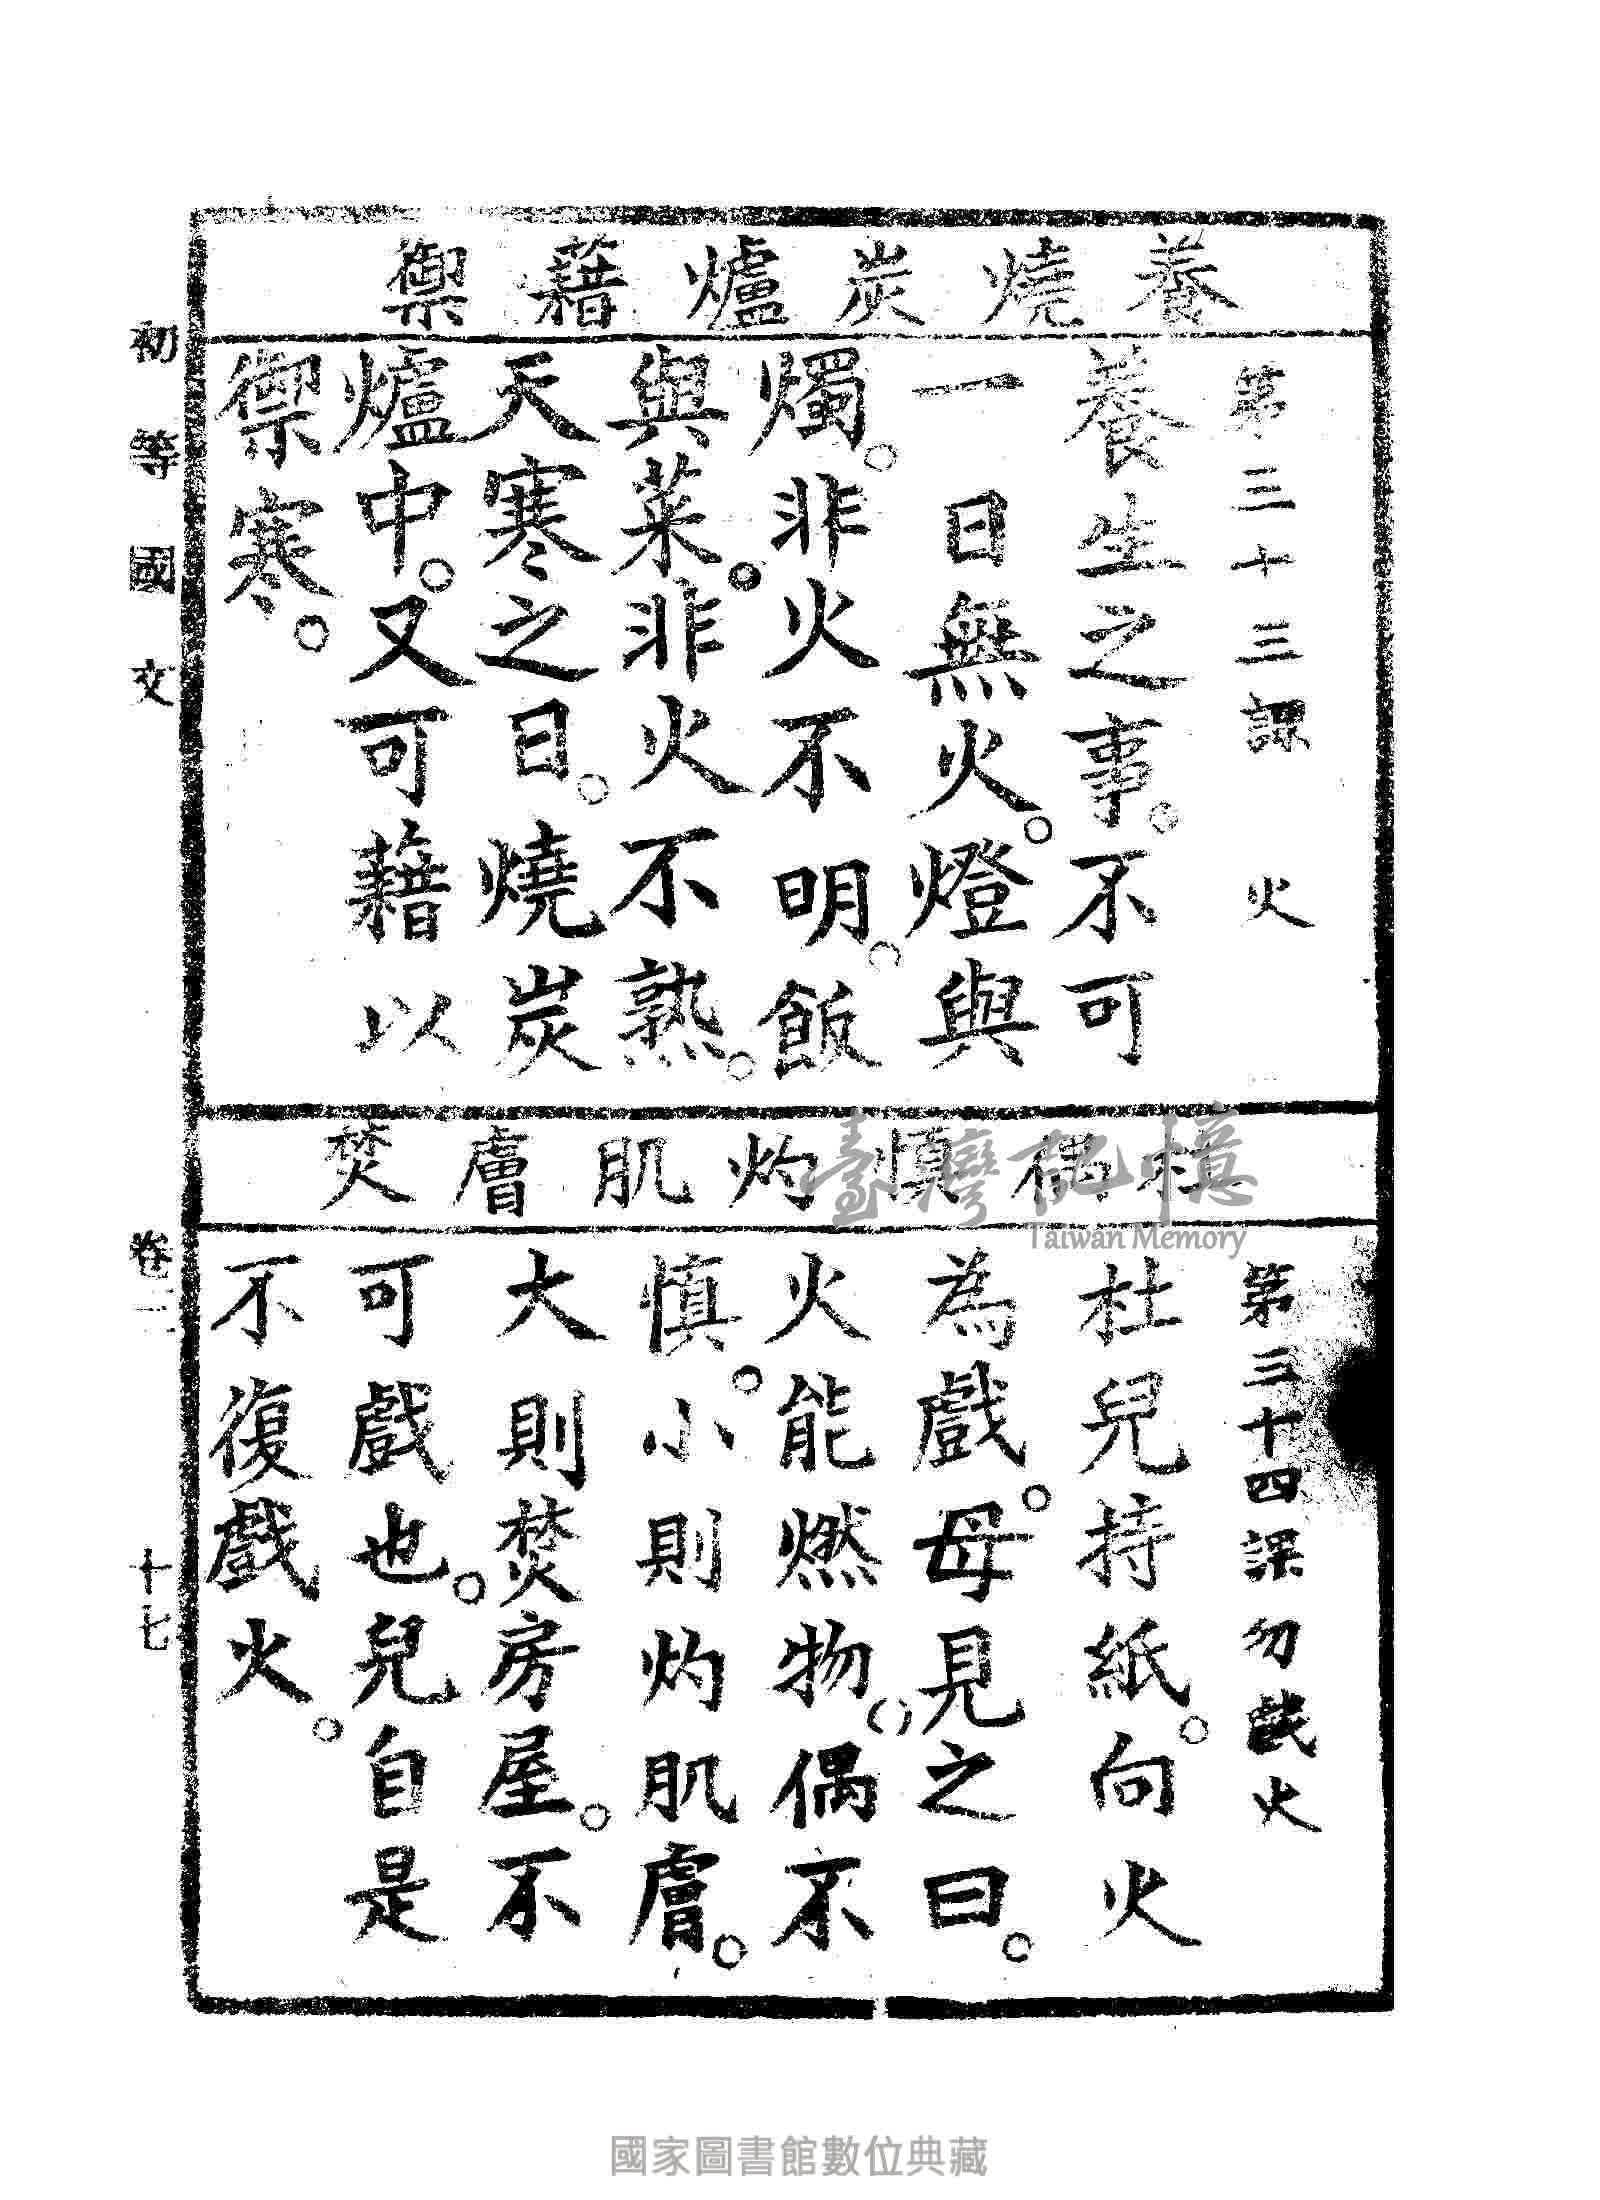 養燒炭爐藉禦
第三十三課　火
養生之事。不可
一日無火。燈與
燭。非火不明。飯
與菜。非火不熟。
天寒之日。燒炭
爐中。又可藉以
禦寒。
杜偶慎灼肌膚焚
第三十四課勿戲火
杜兒持紙。向火
為戲。母見之曰。
火能燃物。偶不
慎。小則灼肌膚。
大則焚房屋。不
可戲也。兒自是
不復戲火。
初等國文
卷二
十七
臺灣記憶
Taiwan Memory
國家圖書館數位典藏